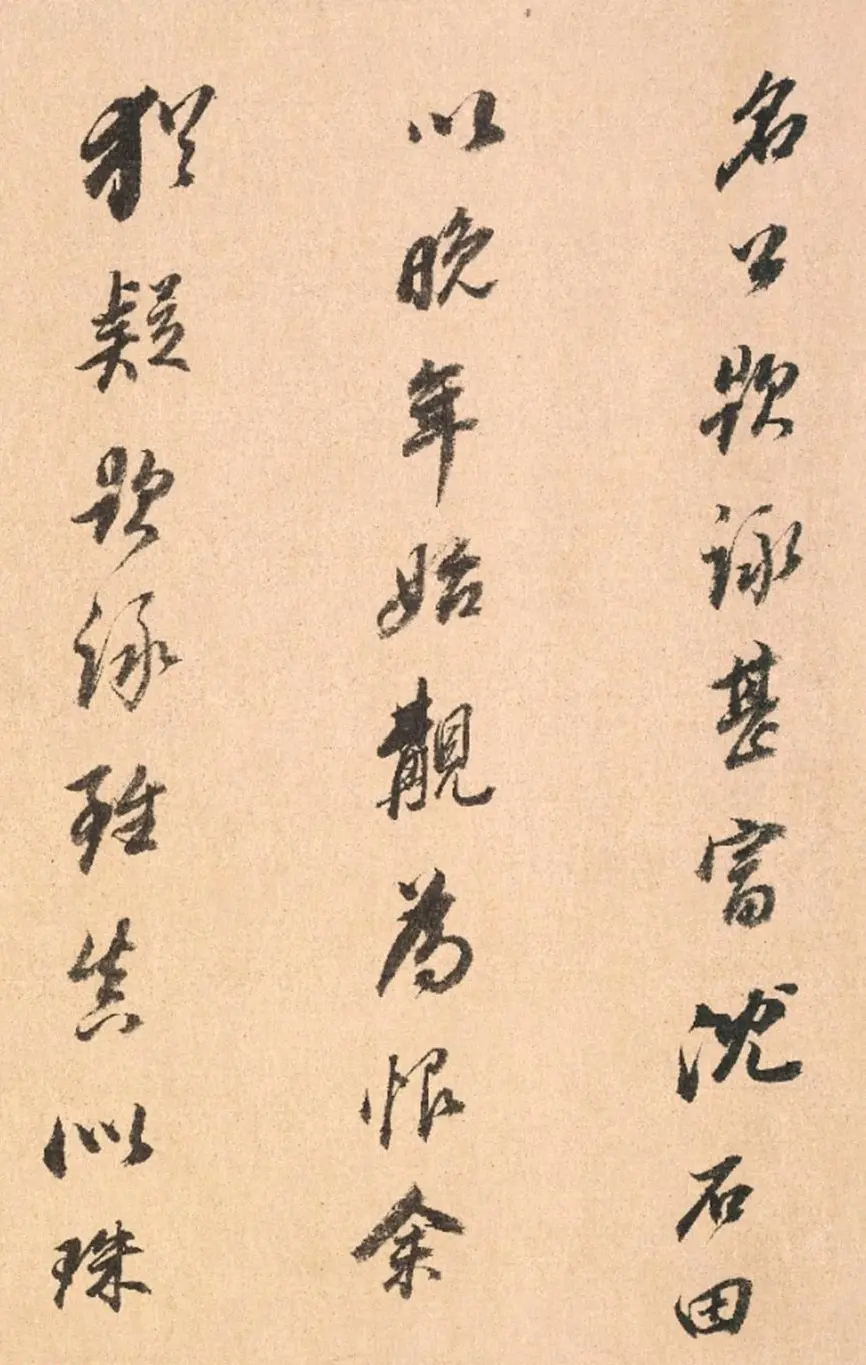 名公題詠甚富沈石田
以晚年始覯為恨余
猶疑題詠雖真似珠